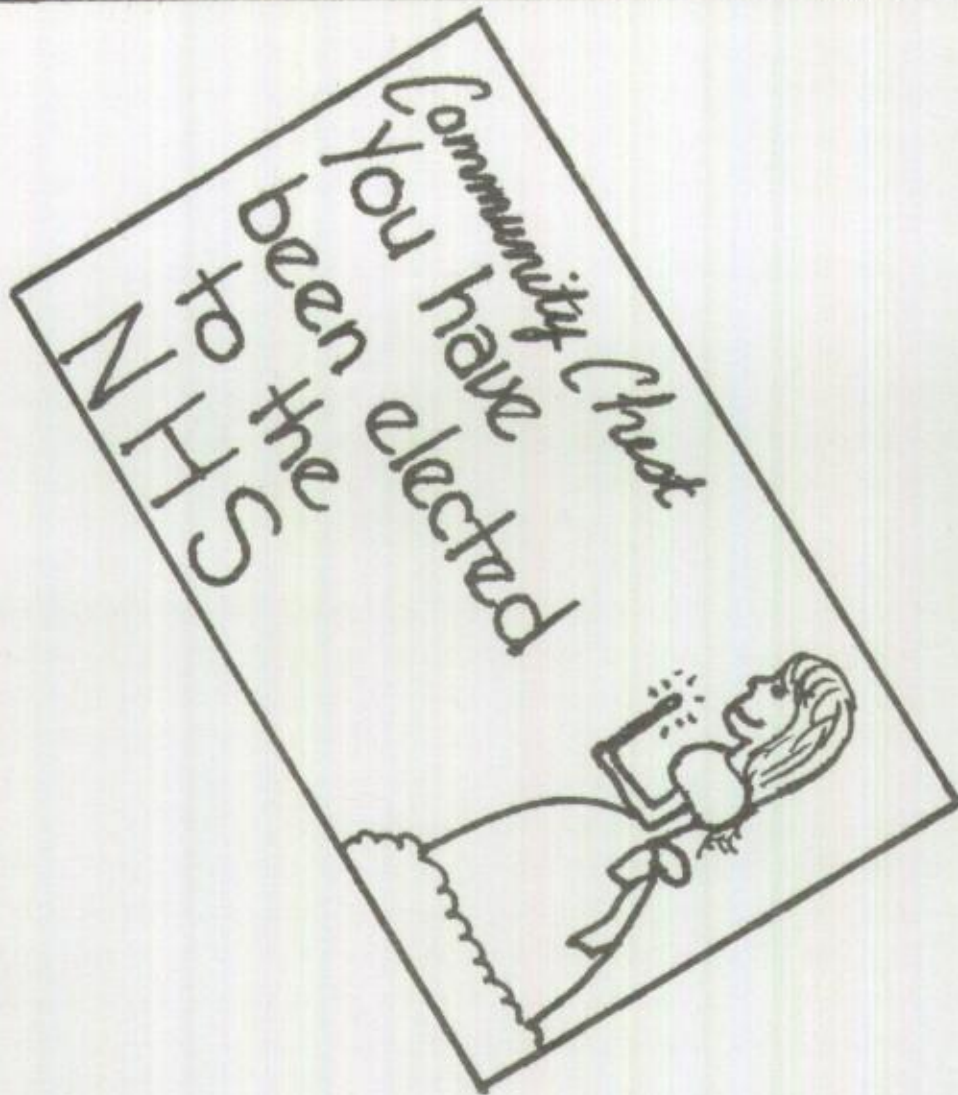 Community Chest
You have
been elected
to the
NHS